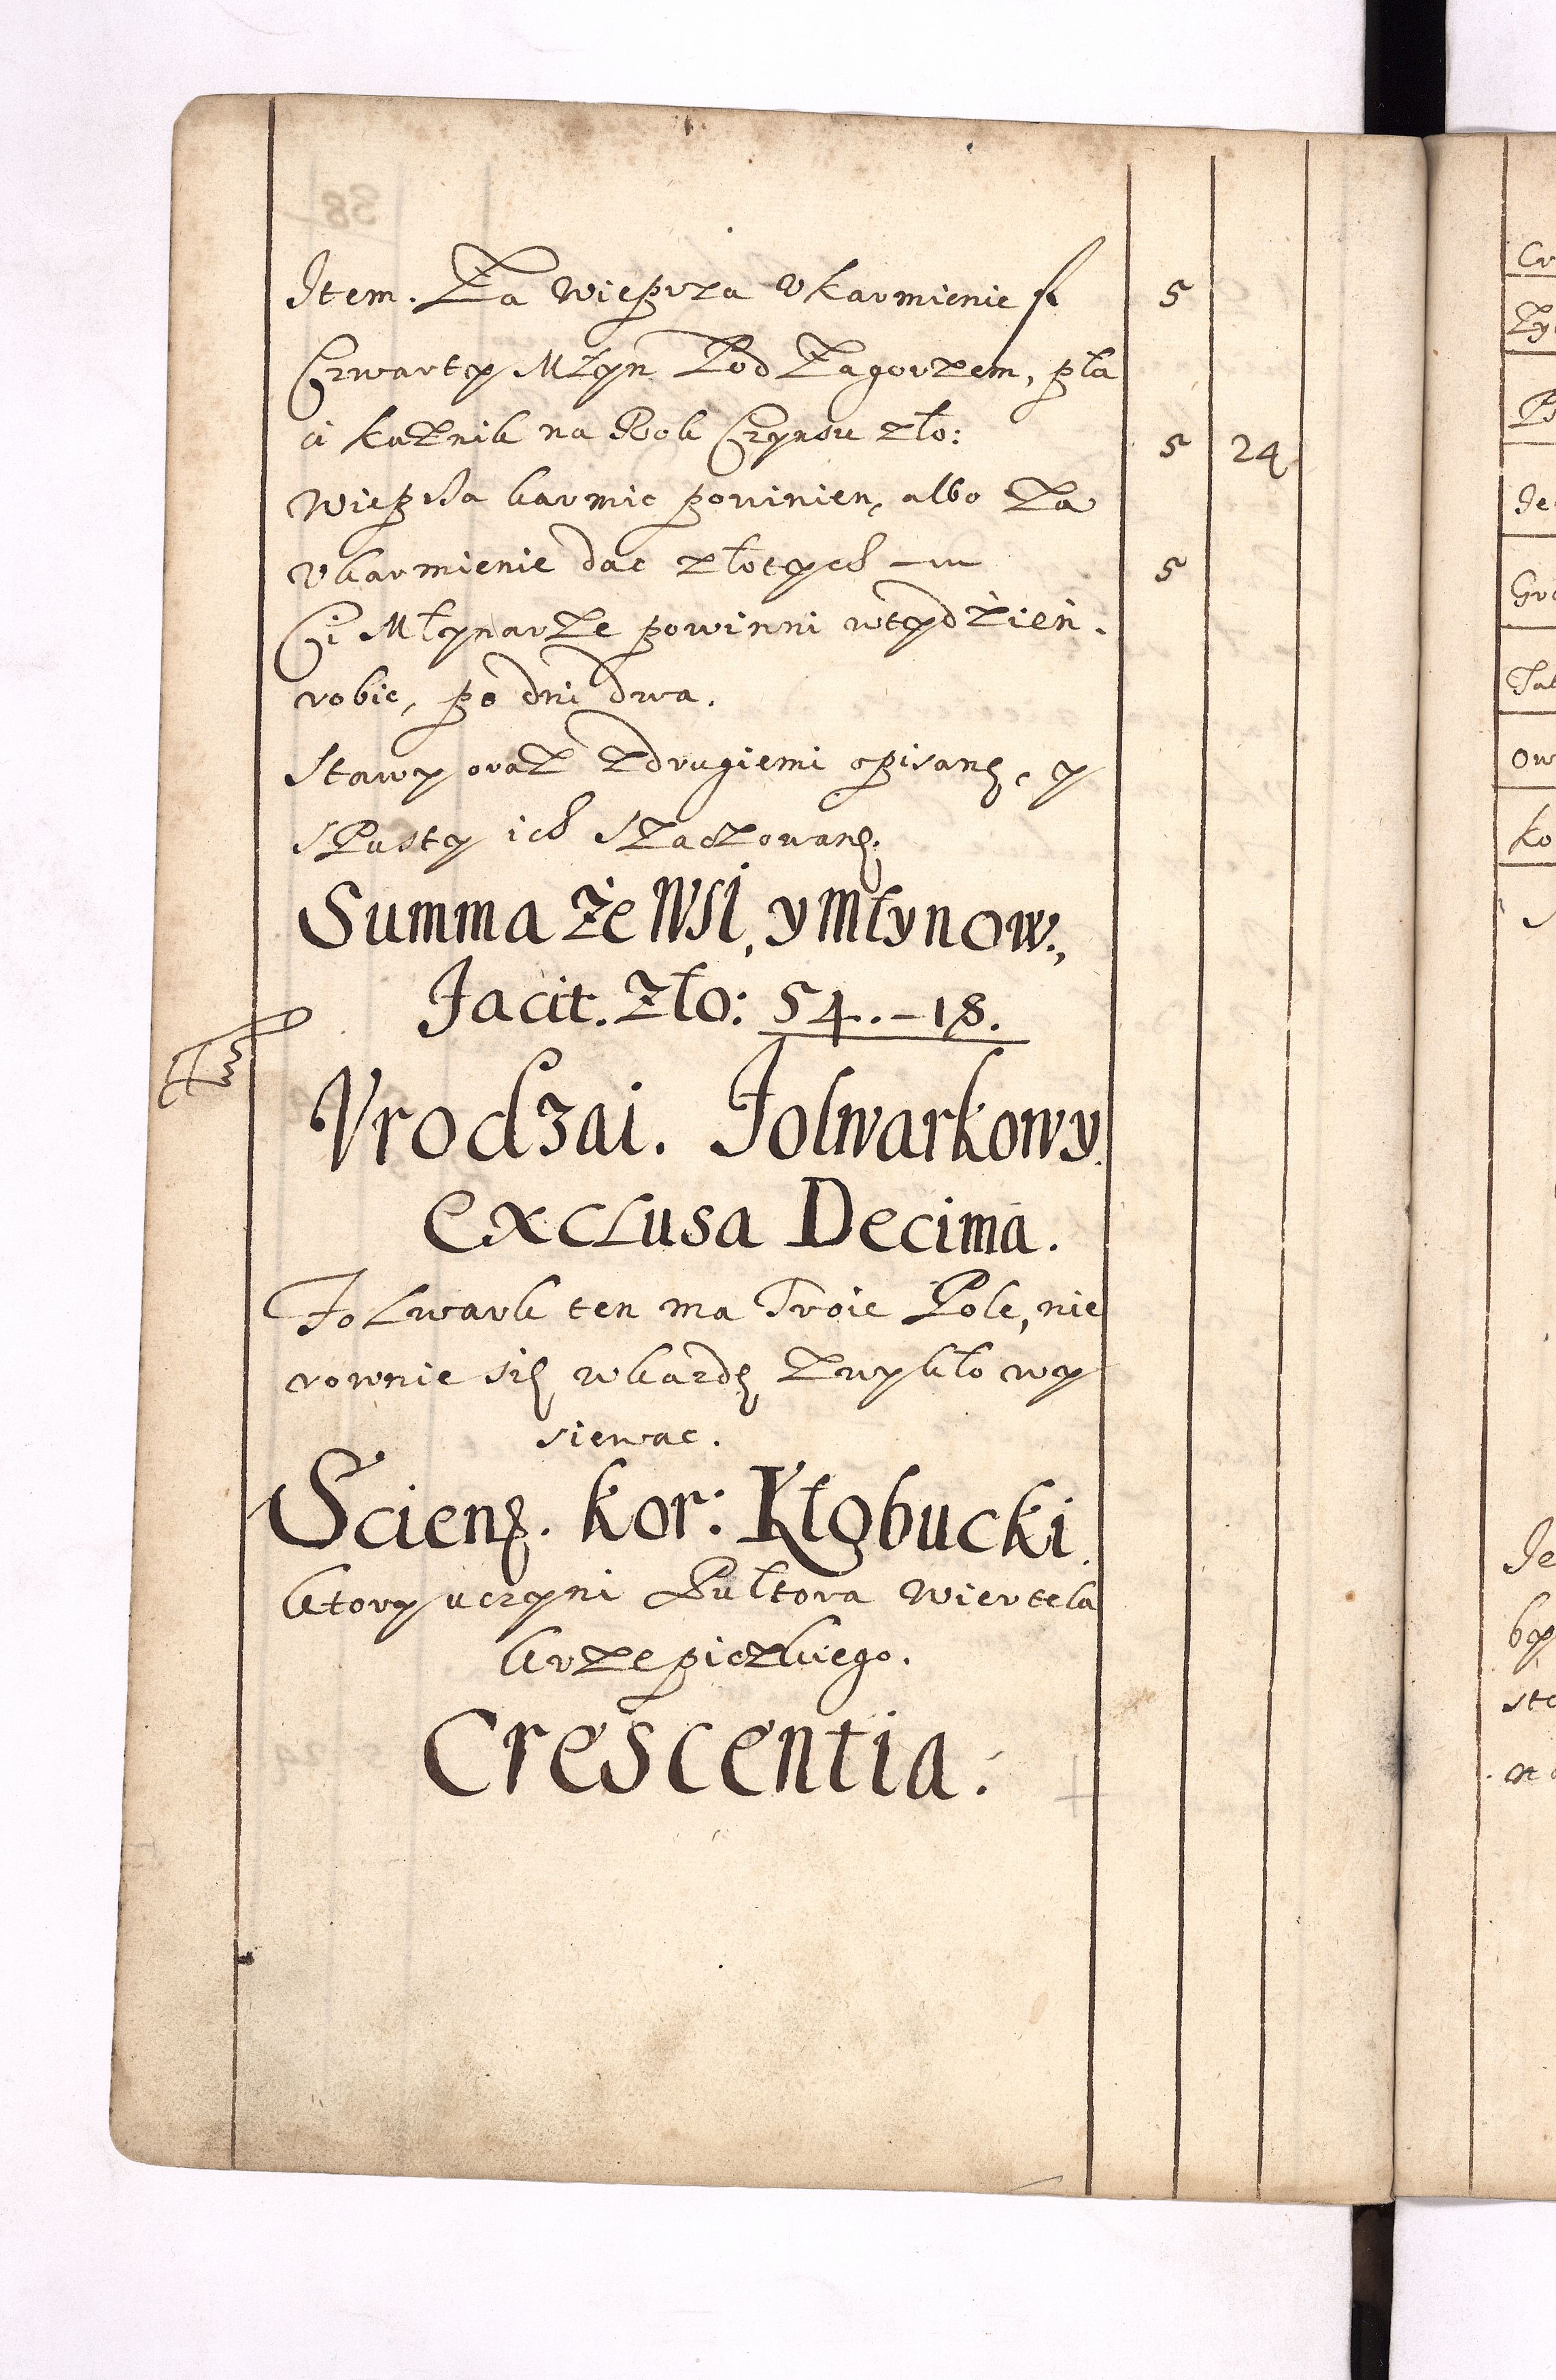 Item. Za Wieprza Vkarmienie fl 5
Czwarty Młyn Pod Zagorzem, pła
ci Kuznik na Rok Czynsu zło: 5 24
Wieprza karmic powinien, albo Za
Vkarmienie dac złotych 5
Ci Młynarze powinni wtydzień.
robic, po dni dwa.
Stawy oraz zdrugiemi opisanę, y
sPusty ich szaczowanę.
Summa Ze WSI, y Młynow.,
Facit. Zło: 54.–18.
Vrodzai. Folwarkowy.
Exclusa Decima.
Folwark ten ma Troie Pole, nie
rownie się wkazdę zwykło wy
siewac.
Scienę. kor: Kłobucki.
ktory uczyni Pułtora Wiertela
krzepiczkiego.
Crescentia.
Cr
Zy
Je
Gro
Tat
ow
Ko
Je
by
ste